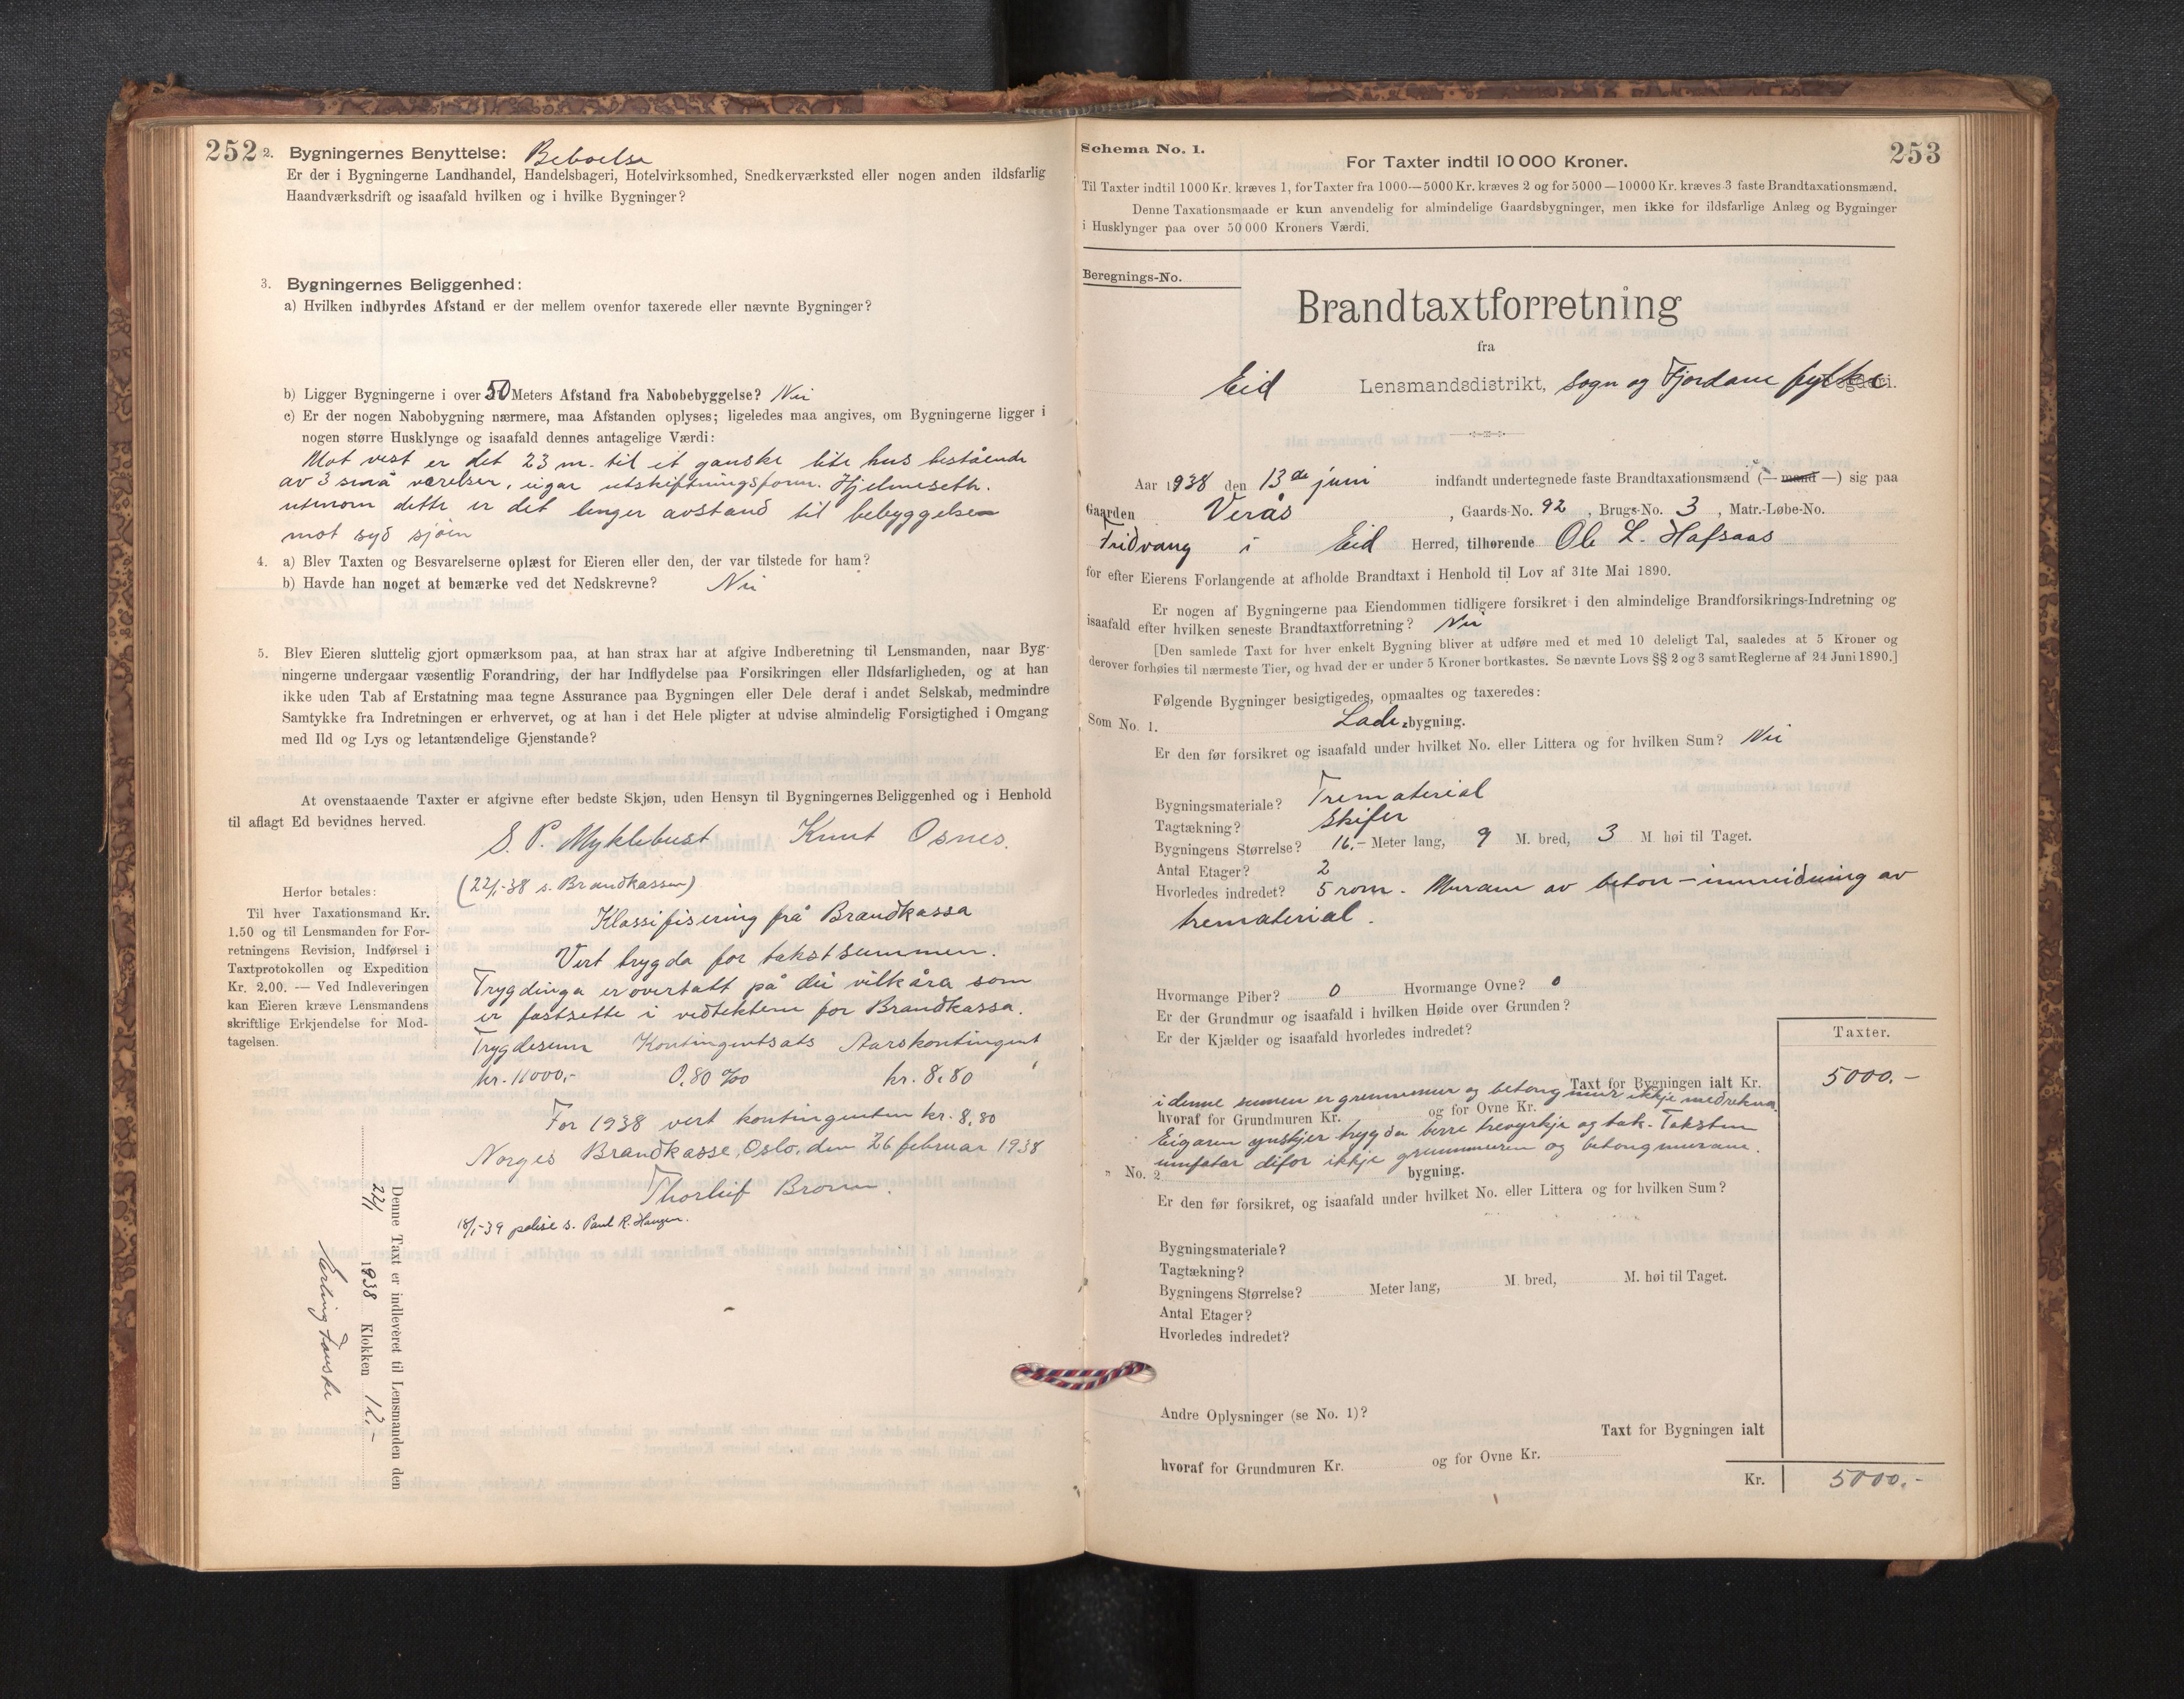 252
2. Bygningernes Benyttelse: Beboelse
Er der i Bygningerne Landhandel, Handelsbageri, Hotelvirksomhed, Snedkerværksted eller nogen anden ildsfarlig
Haandværksdrift og isaafald hvilken og i hvilke Bygninger?
3. Bygningernes Beliggenhed:
a) Hvilken indbyrdes Afstand er der mellem ovenfor taxerede eller nævnte Bygninger?
b) Ligger Bygningerne i over 50 Meters Afstand fra Nabobebyggelse? Nei
c) Er der nogen Nabobygning nærmere, maa Afstanden oplyses; ligeledes maa angives, om Bygningerne ligger i
nogen større Husklynge og isaafald dennes antagelige Værdi:
Mot vest er det 23 m. til et ganske lite hus bestående
av 3 små værelser, eigar utskiftningsform. Hjelmeseth.
utenom dette er det lenger avstand til bebyggelse
mot syd sjøen
4. a) Blev Taxten og Besvarelserne oplæst for Eieren eller den, der var tilstede for ham?
b) Havde han noget at bemærke ved det Nedskrevne? Nei
5. Blev Eieren sluttelig gjort opmærksom paa, at han strax har at afgive Indberetning til Lensmanden, naar Byg-
ningerne undergaar væsentlig Forandring, der har Indflydelse paa Forsikringen eller Ildsfarligheden, og at han
ikke uden Tab af Erstatning maa tegne Assurance paa Bygningen eller Dele deraf i andet Selskab, medmindre
Samtykke fra Indretningen er erhvervet, og at han i det Hele pligter at udvise almindelig Forsigtighed i Omgang
med Ild og Lys og letantændelige Gjenstande?
At ovenstaaende Taxter er afgivne efter bedste Skjøn, uden Hensyn til Bygningernes Beliggenhed og i Henhold
til aflagt Ed bevidnes herved.
S. P. Myklebust Knut Osnes.
(22/1-38 s. Brandkassen)
Klassifisering frå Brandkassa
Vert trygda for takstsummen.
Trygdinga er overtatt på dei vilkåra som
er fastsette i vedtektene for Brandkassa.
Trygdesum Kontingentsats Aarskontingent
kr. 11000,- 0,80 ‰ kr. 8,80
For 1938 vert kontingenten kr. 8,80
Norges Brandkasse, Oslo, den 26 februar 1938
Thorleif Broun.
18/1-39 polise s. Paul R. Haugen.
Herfor betales:
Til hver Taxationsmand Kr.
1.50 og til Lensmanden for For-
retningens Revision, Indførsel i
Taxtprotokollen og Expedition
Kr. 2.00. — Ved Indleveringen
kan Eieren kræve Lensmandens
skriftlige Erkjendelse for Mod-
tagelsen.
Denne Taxt er indleveret til Lensmanden den
22/1 1938 Klokken 12,-
Erling Fauske
253
Schema No. 1.
For Taxter indtil 10 000 Kroner.
Til Taxter indtil 1000 Kr. kræves 1, for Taxter fra 1000—5000 Kr. kræves 2 og for 5000—10000 Kr. kræves 3 faste Brandtaxationsmænd.
Denne Taxationsmaade er kun anvendelig for almindelige Gaardsbygninger, men ikke for ildsfarlige Anlæg og Bygninger
i Husklynger paa over 50 000 Kroners Værdi.
Beregnings-No.
Brandtaxtforretning
fra
Eid Lensmandsdistrikt, Sogn og Fjordane fylke
Aar 1938 den 13de juni indfandt undertegnede faste Brandtaxationsmænd (— mand —) sig paa
Gaarden Verås, Gaards-No. 92, Brugs-No. 3, Matr.-Løbe-No.
Fridvang i Eid Herred, tilhørende Ole L. Hafsaas
for efter Eierens Forlangende at afholde Brandtaxt i Henhold til Lov af 31te Mai 1890.
Er nogen af Bygningerne paa Eiendommen tidligere forsikret i den almindelige Brandforsikrings-Indretning og
isaafald efter hvilken seneste Brandtaxtforretning? Nei
[Den samlede Taxt for hver enkelt Bygning bliver at udføre med et med 10 deleligt Tal, saaledes at 5 Kroner og
derover forhøies til nærmeste Tier, og hvad der er under 5 Kroner bortkastes. Se nævnte Lovs §§ 2 og 3 samt Reglerne af 24 Juni 1890.]
Følgende Bygninger besigtigedes, opmaaltes og taxeredes:
Som No. 1. Lade-bygning.
Er den før forsikret og isaafald under hvilket No. eller Littera og for hvilken Sum? Nei
Bygningsmateriale? Tremateriál
Tagtækning? Skifer
Bygningens Størrelse? 16.- Meter lang, 9 M. bred, 3 M. høi til Taget.
Antal Etager? 2
Hvorledes indredet? 5 rom. Murane av beton - innreidning av
tremateriál.
Hvormange Piber? 0 Hvormange Ovne? 0
Er der Grundmur og isaafald i hvilken Høide over Grunden?
Er der Kjælder og isaafald hvorledes indredet?
Taxter.
Taxt for Bygningen ialt Kr. 5000.-
i denne sumen er grunnmur og betongmur ikkje medrekna
hvoraf for Grundmuren Kr. og for Ovne Kr.
Eigaren ynskjer trygda berre treverkje og tak. Taksten
umfatar difor ikkje grunnmuren og betongmurane.
" No. 2 bygning.
Er den før forsikret, og isaafald under hvilket No. eller Littera og for hvilken Sum?
Bygningsmateriale?
Tagtækning?
Bygningens Størrelse? Meter lang, M. bred, M. høi til Taget.
Antal Etager?
Hvorledes indredet?
Andre Oplysninger (se No. 1)?
Taxt for Bygningen ialt
hvoraf for Grundmuren Kr. og for Ovne Kr.
Kr. 5000.-